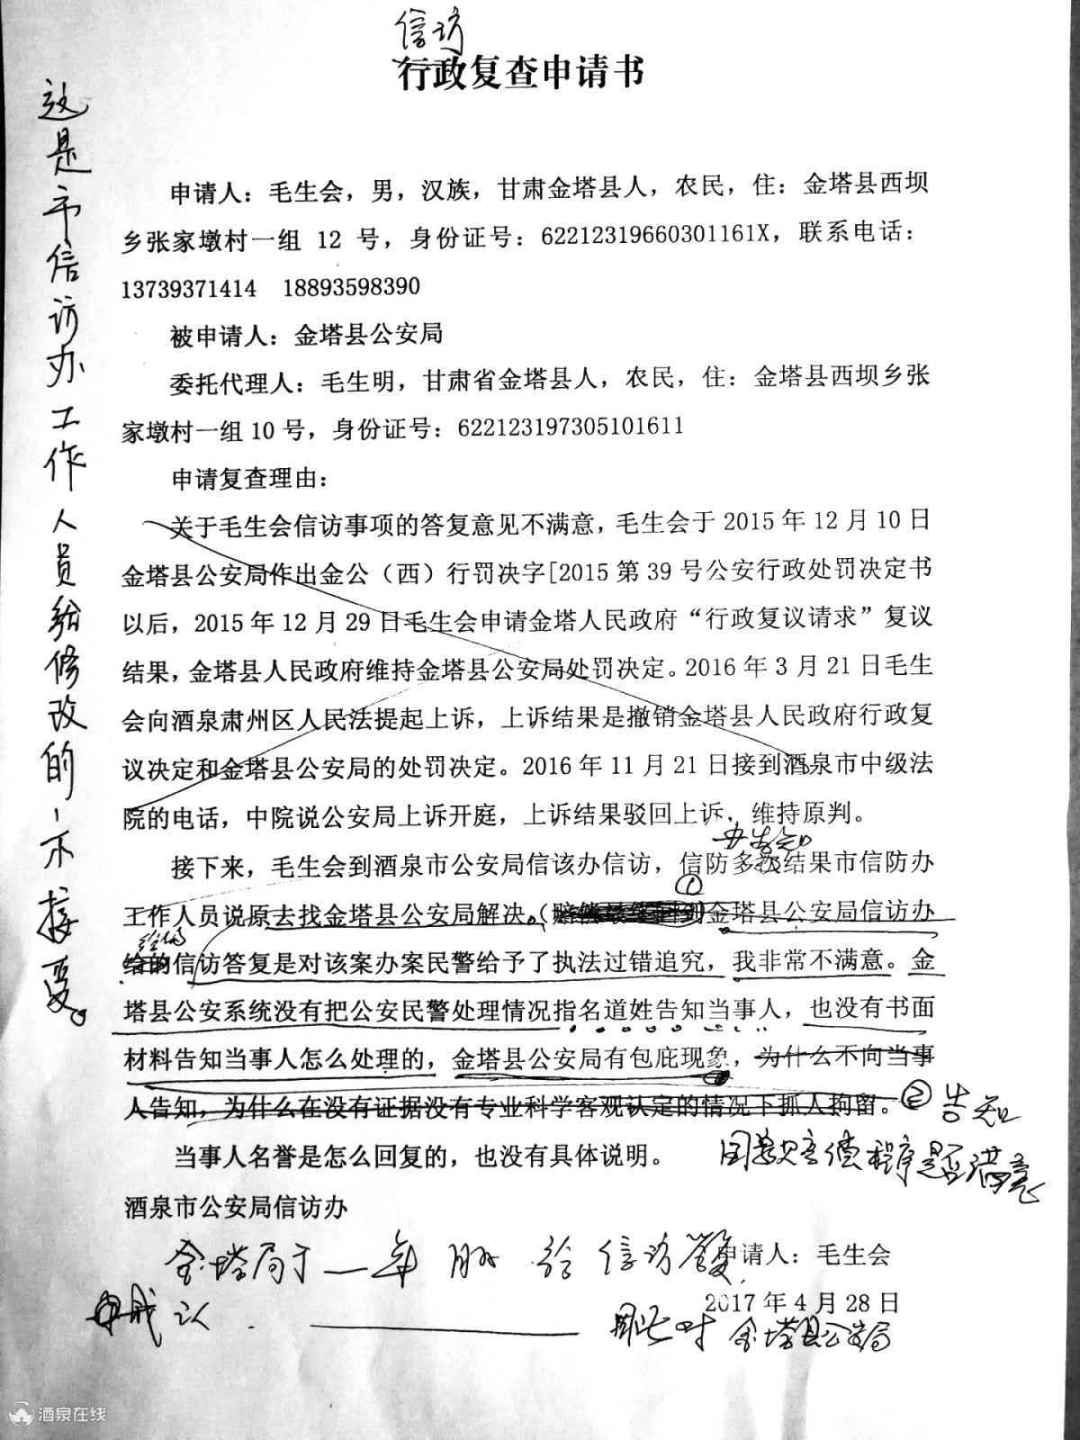 信访
行政复查申请书
这是市信访办工作人员给修改的、不接受。
申请人：毛生会，男，汉族，甘肃金塔县人，农民，住：金塔县西坝
乡张家墩村一组 12 号，身份证号：62212319660301161X，联系电话：
13739371414 18893598390
被申请人：金塔县公安局
委托代理人：毛生明，甘肃省金塔县人，农民，住：金塔县西坝乡张
家墩村一组 10 号，身份证号：622123197305101611
申请复查理由：
关于毛生会信访事项的答复意见不满意，毛生会于 2015 年 12 月 10 日
金塔县公安局作出金公（西）行罚决字[2015 第 39 号公安行政处罚决定书
以后，2015 年 12 月 29 日毛生会申请金塔人民政府“行政复议请求”复议
结果，金塔县人民政府维持金塔县公安局处罚决定。2016 年 3 月 21 日毛生
会向酒泉肃州区人民法提起上诉，上诉结果是撤销金塔县人民政府行政复
议决定和金塔县公安局的处罚决定。2016 年 11 月 21 日接到酒泉市中级法
院的电话，中院说公安局上诉开庭，上诉结果驳回上诉，维持原判。
办告知
接下来，毛生会到酒泉市公安局信该办信访，信防多级结果市信防办
①
工作人员说原去找金塔县公安局解决。（金塔县公安局信访办
给的信访答复是对该案办案民警给予了执法过错追究，我非常不满意。金
塔县公安系统没有把公安民警处理情况指名道姓告知当事人，也没有书面
材料告知当事人怎么处理的，金塔县公安局有包庇现象，为什么不向当事
人告知，为什么在没有证据没有专业科学客观认定的情况下抓人拘留。②告知
当事人名誉是怎么回复的，也没有具体说明。
国家赔偿程序是否满意
酒泉市公安局信访办
金塔局于一年 月 给信访答复
申请人：毛生会
2017 年 4 月 28 日
认
金塔县公安局
酒泉在线